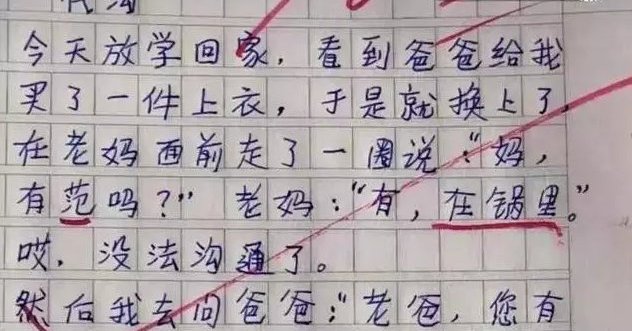 代沟
今天放学回家，看到爸爸给我
买了一件上衣，于是就换上了，
在老妈面前走了一圈说：“妈，
有范吗？”老妈：“有，在锅里。”
哎，没法沟通了。
然后我去问爸爸：“老爸，您有